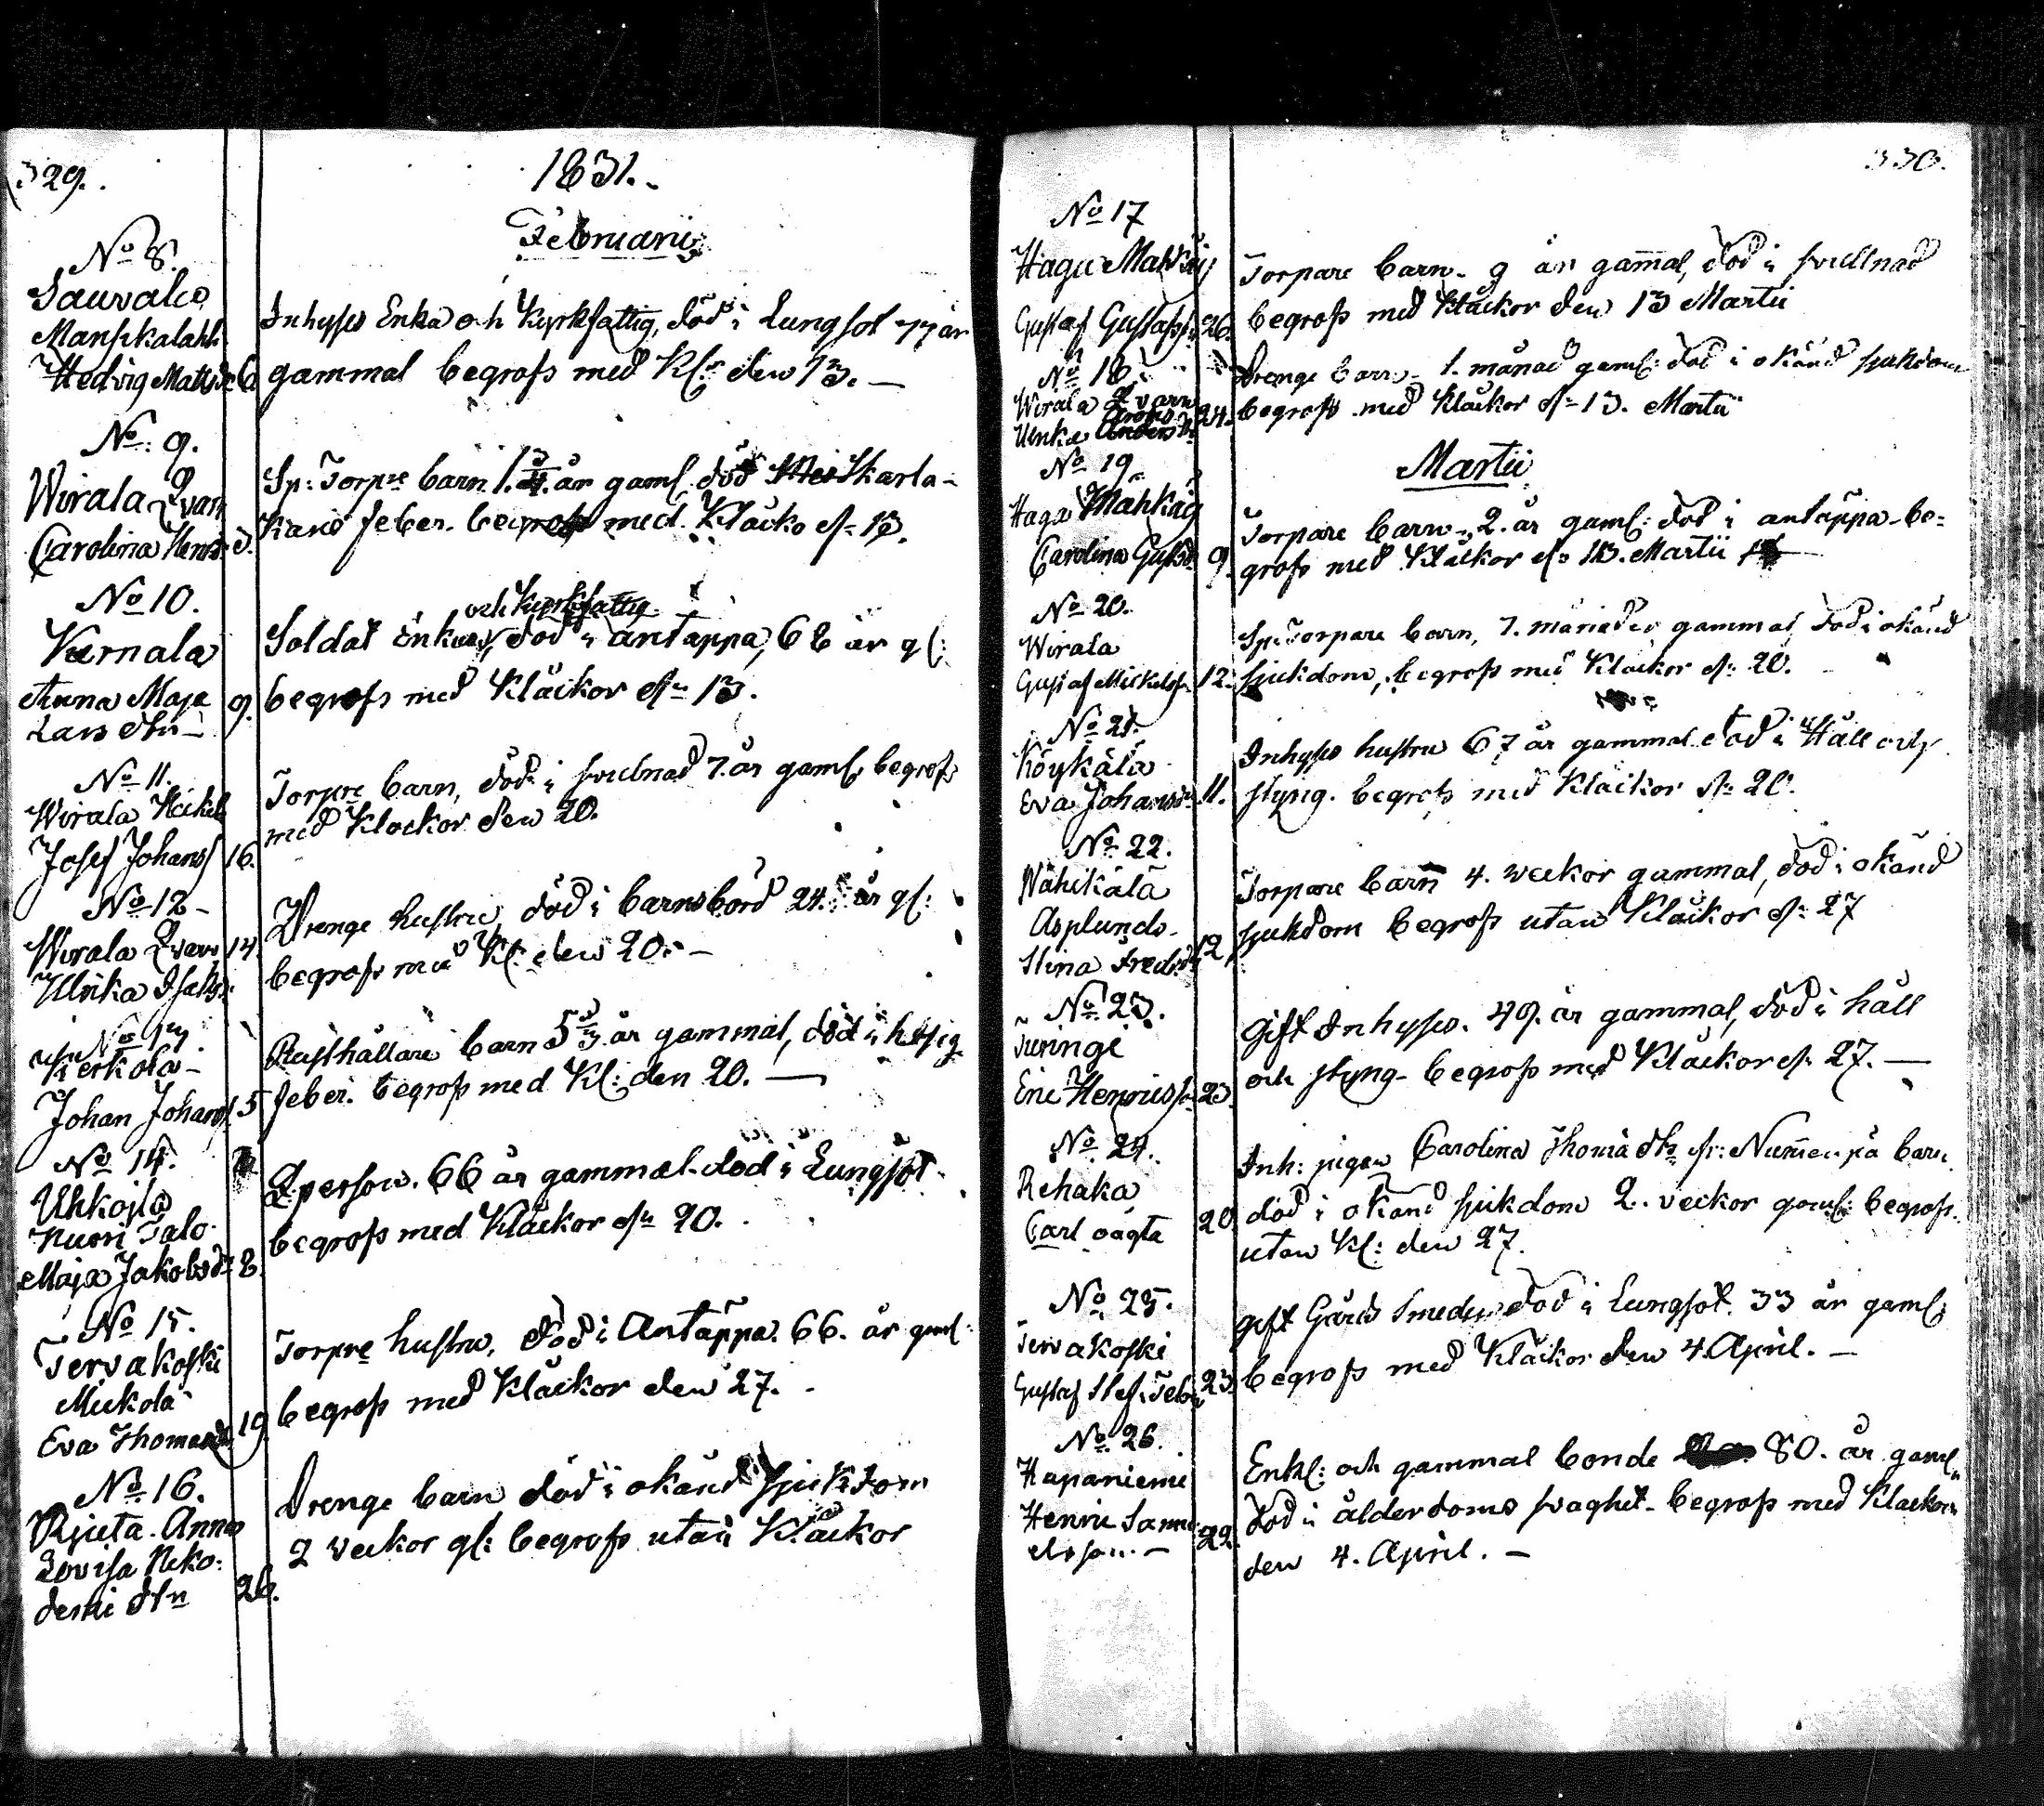 329.
1831.
Februarii
No 8.
Sauvala
Hedvig Matts dr 6
Inhyses Enka och Kyrkfattig, död i Lungsot 77 år
gammal begrofs med Kl:r den 13. —
No: 9.
Wirala Qvarn
Carolina Henr: d.
Sp: Torpre barn 1. år gaml. död Skarla-
kans feber. begrofs med Klåcko d: 13.
No 10.
Kernala
Anna Maja
Lars dtr — 9.
och Kyrkfattig
Soldat Enka, död i antäppa, 68 år gl:
begrofs med Kläckor dn 13.
No 11.
Wirala Heikel
Josef Johans 16.
Torpre barn, död i svulnad 7. år gaml. begrofs
med Klockor den 20.
No 12 –
Wirala Qvarn 14.
Ulrika Isaks:
Drenge hustru, död i barnsbörd 24. år gl:
begrofs med Kl: den 20. –
No 13.
Kerkola –
Johan Johans. 5
Rusthållare barn 5 år gammal, död i hetsig
feber. begrofs med Kl: den 20. —
No 14.
Uhkoila
Nuori Talo
Maja Jakobs dr 8.
Qperson. 66 år gammal död i Lungsot
begrofs med Kläckor dn 20.
No 15.
Tervakoski
Mickola
Eva Thomasdr 19.
Torpre hustru, död i Antäppa. 66. år gaml:
begrofs med Kläckor den 27.
No 16.
Anna
Lovisa Neko:
demi dtr 26.
Drenge barn död i okänd sjukdom
2 veckor gl: begrofs utan Kläckor
330.
No 17
Haga Mahkai
Gustaf Gustafss. 26.
Torpare barn. 9 år gam̄al, död i svullnad
begrofs med Kläckor den 13 Martii
No 18.
Wirala Qvarn
24.
Drenge Barn. 1. månad gaml: död i okänd sjukdom
begrofs med Kläckor d: 13. Martii
Martii
No 19
Haga Mahkai
Carolina Gustd. 9.
Torpare barn. 2. år gaml: död i antäppa – be=
grofs med Kläckor d: 13. Martii
No 20.
Wirala
Gustaf Mickelss. 12.
Sp: Torpare barn, 7. månader gammal, död i okänd
sjukdom, begrofs med Kläckor d: 20.
No 21.
Köykälä
Eva Johansdr 11.
Inhyses hustru 67 år gammal död i Håll och
styng. begrofs med Kläckor d: 20.
No 22.
Wähikälä
Asplunds
Stina Fredr. 12
Torpare barn 4. veckor gammal, död i okänd
sjukdom begrofs utan Kläckor d: 27
No 23.
Turinge
Eric Henricss. 23.
Gift Inhyses. 49. år gammal, död i håll
och styng – begrofs med Kläckor d: 27. —
No 24.
Rehaka
Carl oägta 20.
Inh: pigan Carolina Thomä dtr fr: Num̄en på barn
död i okänd sjukdom 2. veckor gaml: begrofs
utan Kl: den 27.
No 25.
Tervakoski
Gustaf 23.
Gift Gårds Smeden död i Lungsot. 33 år gaml:
begrofs med Kläckor den 4. April. —
No 26.
Hapaniemi
Henric Samu
elsson. — 29.
Enkl: och gammal bonde 80. år gaml.
död i ålderdoms svaghet – begrofs med Klackor
den 4. April. —